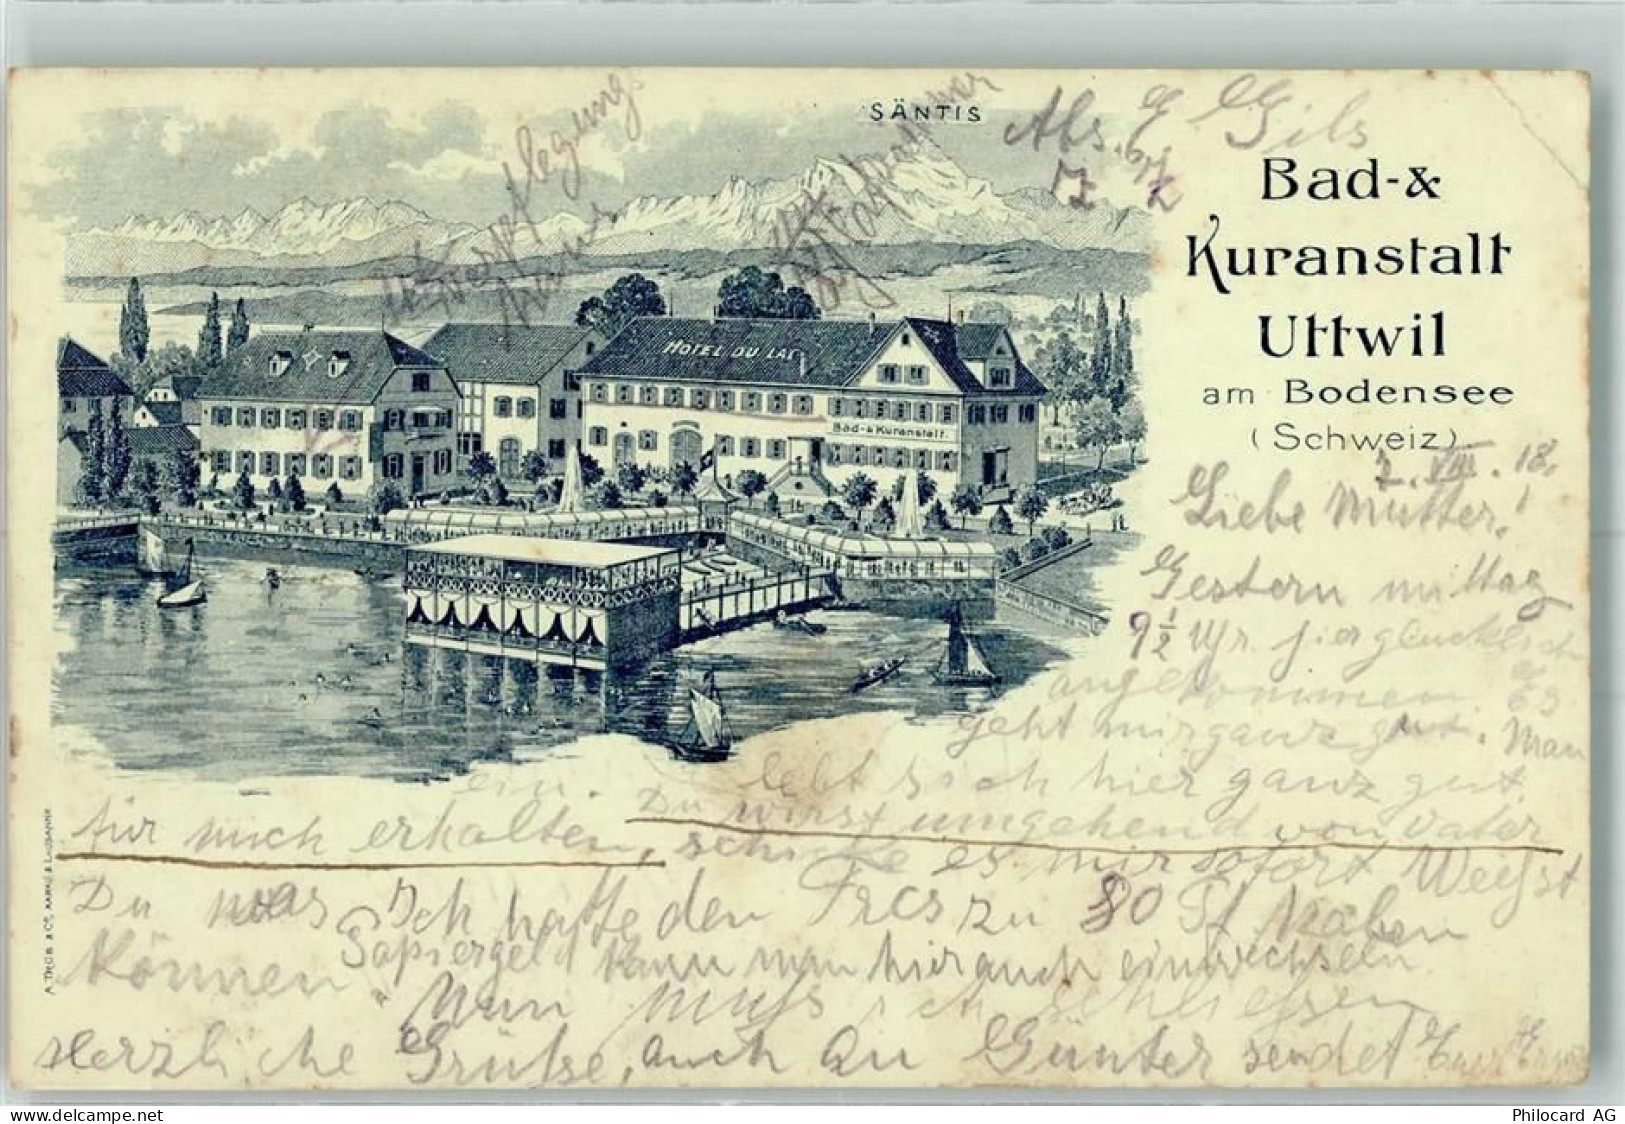 SÄNTIS
Abs. E. Gils
Verpflegung
Bad-&
Kuranstalt
Uttwil
am Bodensee
(Schweiz)
HOTEL DU LAC
Bad-&Kuranstalt.
2. VIII. 18.
Liebe Mutter!
Gestern mittag
9 1/2 Uhr hier glücklich
angekommen. Es
geht mir ganz gut. Man
lebt sich hier ganz gut
ein. Du wirst umgehend von Vater
für mich erhalten, schicke es mir sofort. Weißt
Du was Ich hatte den Frcs zu 80 Pf haben
können. Papiergeld kann man hier auch einwechseln.
Nun muß ich schließen
Herzliche Grüße, auch an Günter sendet Euer
A. TRÜB & CIE, AARAU & LAUSANNE
www.delcampe.net
Philocard AG